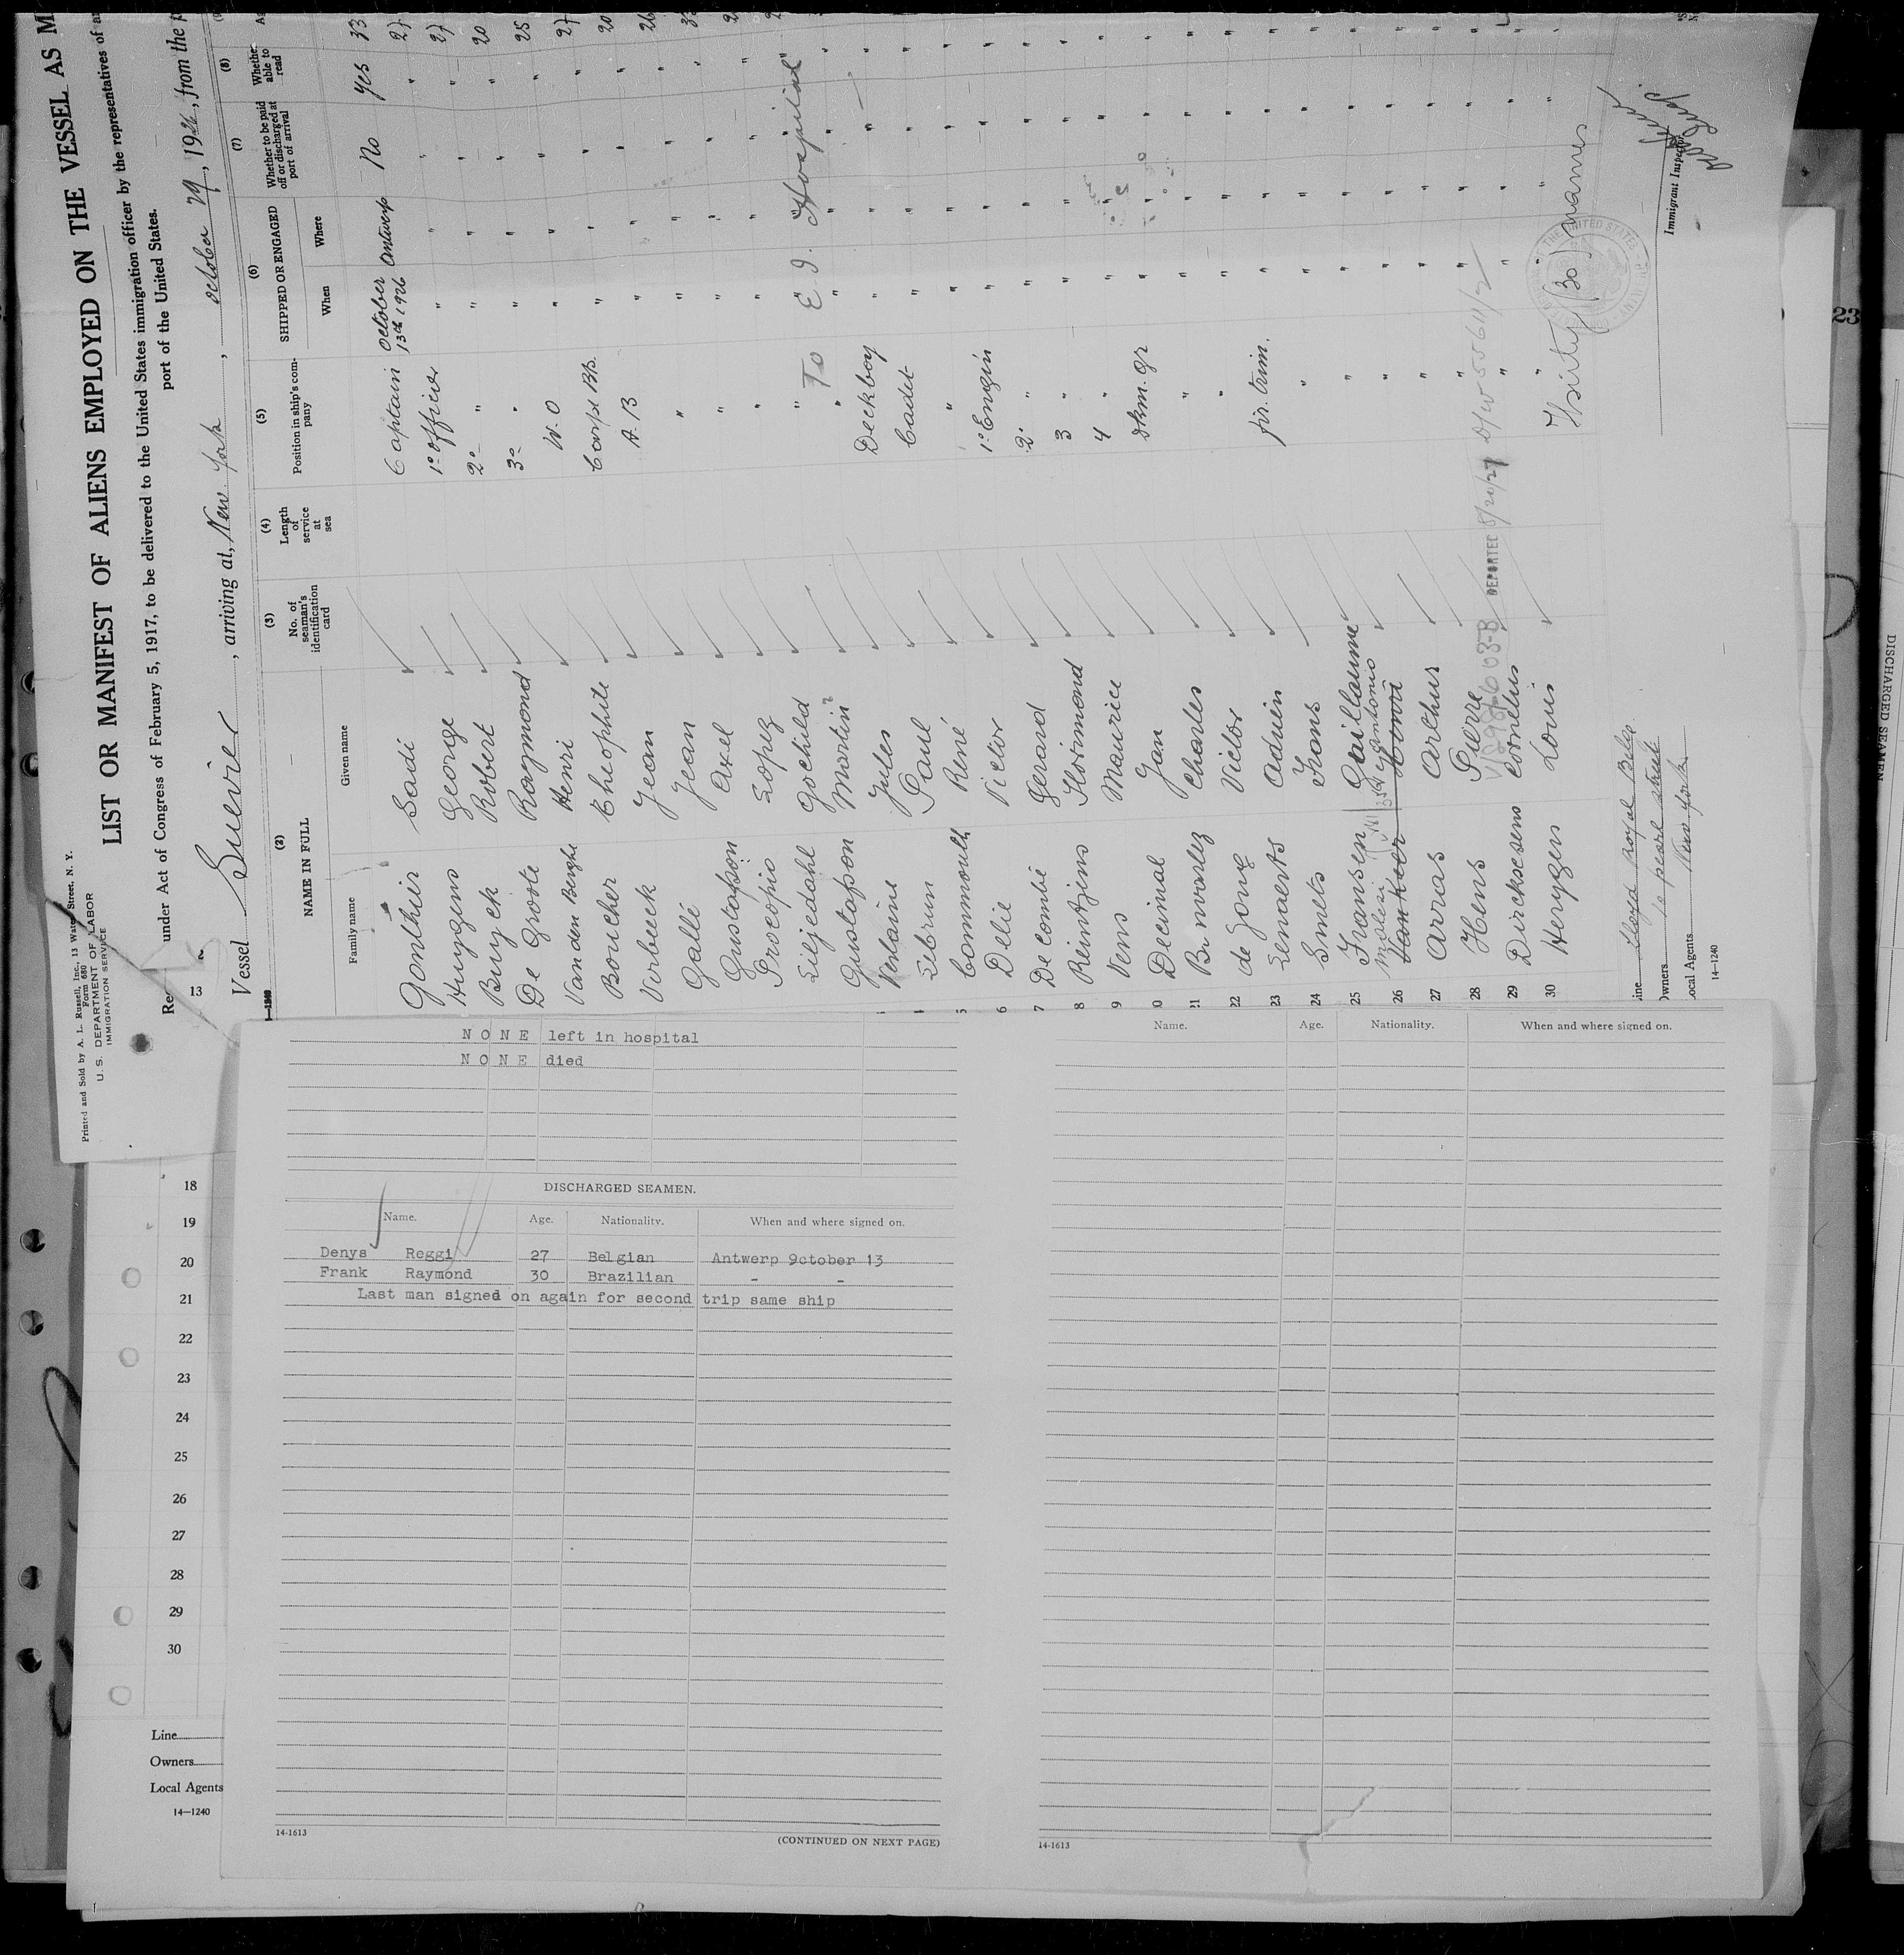 LIST OR MANIFEST OF ALIENS EMPLOYED ON THE VESSEL AS M
under Act of Congress of February 5, 1917, to be delivered to the United States immigration officer by the representatives of a
port of the United States.
Printed and Sold by A. L. Russell, Inc., 13 Water Street, N. Y.
Form 680
U. S. DEPARTMENT OF LABOR
IMMIGRATION SERVICE
Vessel Suevier, arriving at, New York, october 29, 1926, from the
(2) (3) (4) (5) (6) (7) (8)
NAME IN FULL
Family name Given name
No. of seaman's identification card
Length of service at sea
Position in ship's company
SHIPPED OR ENGAGED
When Where
Whether to be paid off or discharged at port of arrival
Whether able to read
Gonthier Sadi Captain October 13th 1926 Antwerp No yes 33
Huygens George 1° officer " " " " 27
Buyck Robert 2° " " " " " 27
De Groote Raymond 3° " " " " " 20
Van den Berghe Henri W. O " " " " 25
Boucher Theophile " " " " 27
Verbeeck Jean A. B " " " " 20
Gallé Jean " " " " " 26
Gustafson Axel " " " " "
Procopio Lopez " " " " "
Liljedahl Gochild " " " " "
Gustafson Martin " To E. I. Hospital
Verlaine Jules Deckboy " " " "
Lebrun Paul Cadet " " " "
5 Commouth René " " " " "
6 Delie Victor 1° Engin " " " "
7 Decombe Gerard 2° " " " " "
8 Reintjins Florimond 3 " " " " "
9 Vens Maurice 4 " " " " "
0 Decinal Jan dkm. gr " " " "
21 Charles " " " " "
22 de Jong Victor " " " " "
23 Lenaerts Aduien fir. trim. " " " "
24 Smets Frans " " " " "
25 Fransen Guillaume " " " " "
26 Antonio " " " " "
27 Arras Arthur " " " " "
28 Hens Pierre " " " " "
DEPORTED
29 Dircksens Cornelius " " " " "
30 Heruygen Louis " " " " "
Thirty (30) names
Immigrant Inspector.
Line Lloyd Royal Belge
Owners 10 pearl street
Local Agents New York
14—1240
NONE left in hospital
NONE died
DISCHARGED SEAMEN.
Name. Age. Nationality. When and where signed on.
Denys Reggi 27 Belgian Antwerp 9ctober 13
Frank Raymond 30 Brazilian - -
Last man signed on again for second trip same ship
14-1613
(CONTINUED ON NEXT PAGE)
Name. Age. Nationality. When and where signed on.
14-1613
18
19
20
21
22
23
24
25
26
27
28
29
30
Line
Owners
Local Agents
14—1240
23
DISCHARGED SEAMEN